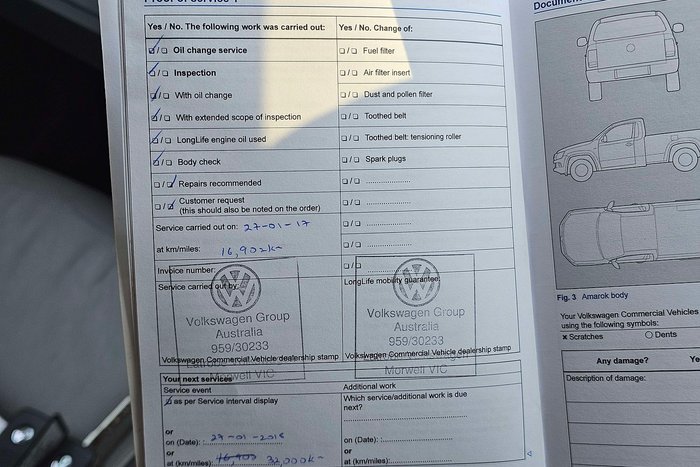 Yes / No. The following work was carried out:
Yes / No. Change of:
☑/☐ Oil change service
☐/☐ Fuel filter
☑/☐ Inspection
☐/☐ Air filter insert
☑/☐ With oil change
☐/☐ Dust and pollen filter
☑/☐ With extended scope of inspection
☐/☐ Toothed belt
☑/☐ LongLife engine oil used
☐/☐ Toothed belt: tensioning roller
☑/☐ Body check
☐/☐ Spark plugs
☐/☑ Repairs recommended
☐/☐ ....................
☐/☑ Customer request
(this should also be noted on the order)
☐/☐ ....................
Service carried out on: 27-01-17
☐/☐ ....................
at km/miles: 16,902km
☐/☐ ....................
Invoice number:
☐/☐
Service carried out by:
LongLife mobility guarantee:
Volkswagen Group
Australia
959/30233
Volkswagen Group
Australia
959/30233
Volkswagen Commercial Vehicle dealership stamp
Volkswagen Commercial Vehicle dealership stamp
Morwell VIC
Morwell VIC
Your next services
Service event
Additional work
☑ as per Service interval display
Which service/additional work is due
next?
or
on (Date): 27-01-2018
on (Date): ....................
or
at (km/miles): 32,000km
or
at (km/miles): ....................
Fig. 3 Amarok body
Your Volkswagen Commercial Vehicles
using the following symbols:
× Scratches
○ Dents
Any damage?
Description of damage: